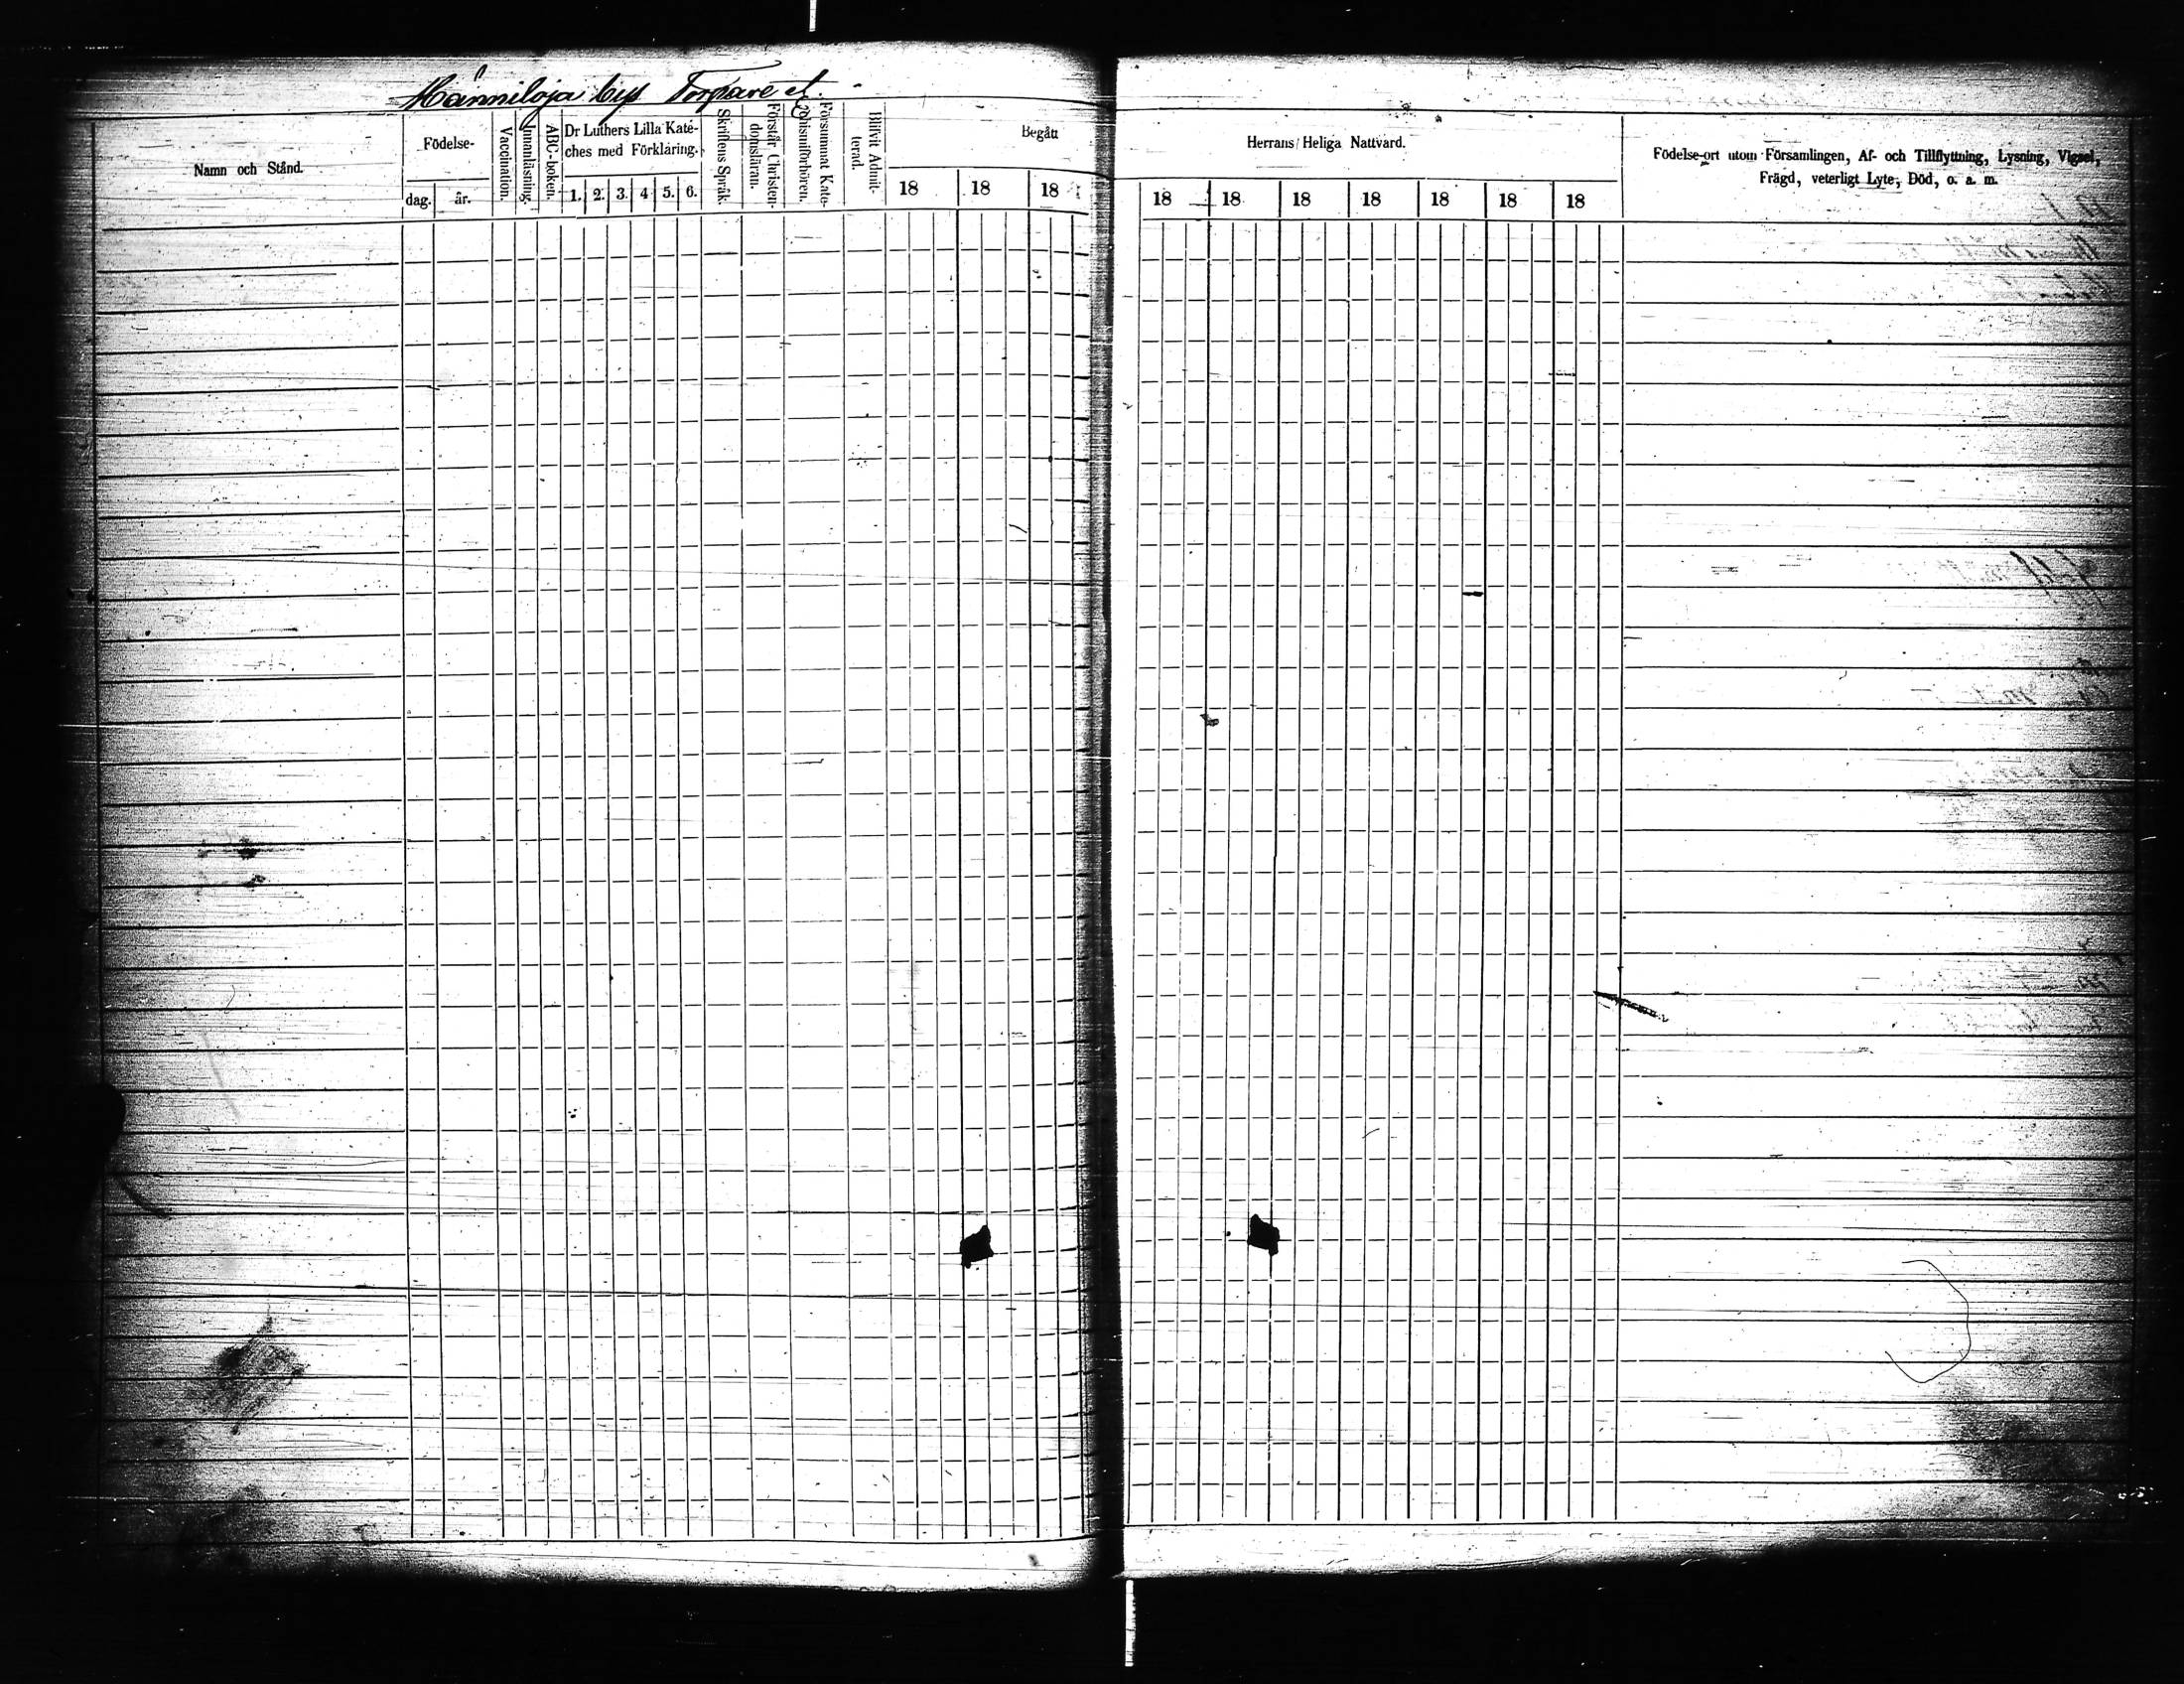 Hänniloja bys Torpare et.
Namn och Stånd.
Födelse-
dag.
år.
Vaccination.
Innanläsning.
ABC-boken.
Dr Luthers Lilla Kate-
ches med Förklaring.
1. 2. 3. 4. 5. 6.
Skriftens Språk.
Förstår Christen-
domsläran.
Försummat Kate-
chismiförhören.
Blifvit Admit-
terad.
Begått
18 18 18
Herrans Heliga Nattvard.
18 18 18 18 18 18 18
Födelse-ort utom Församlingen, Af- och Tillflyttning, Lysning, Vigsel,
Frägd, veterligt Lyte, Död, o. a. m.